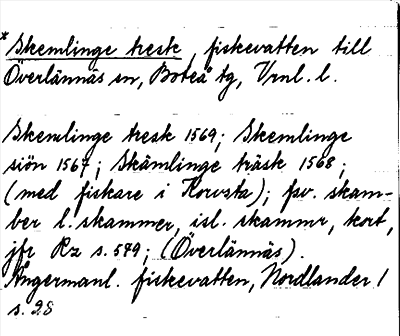 * Skemlinge tresk, fiskevatten till
Överlännäs sn, Boteå tg, Vrnl. l.
Skemlinge tresk 1569; Skemlinge
siön 1567; Skämlinge träsk 1568;
(med fiskare i Korvsta); fsv. skam-
ber l. skammer, isl. skammr, kort,
jfr Rz s. 579; (Överlännäs).
Ångermanl. fiskevatten, Nordlander 1
s. 28